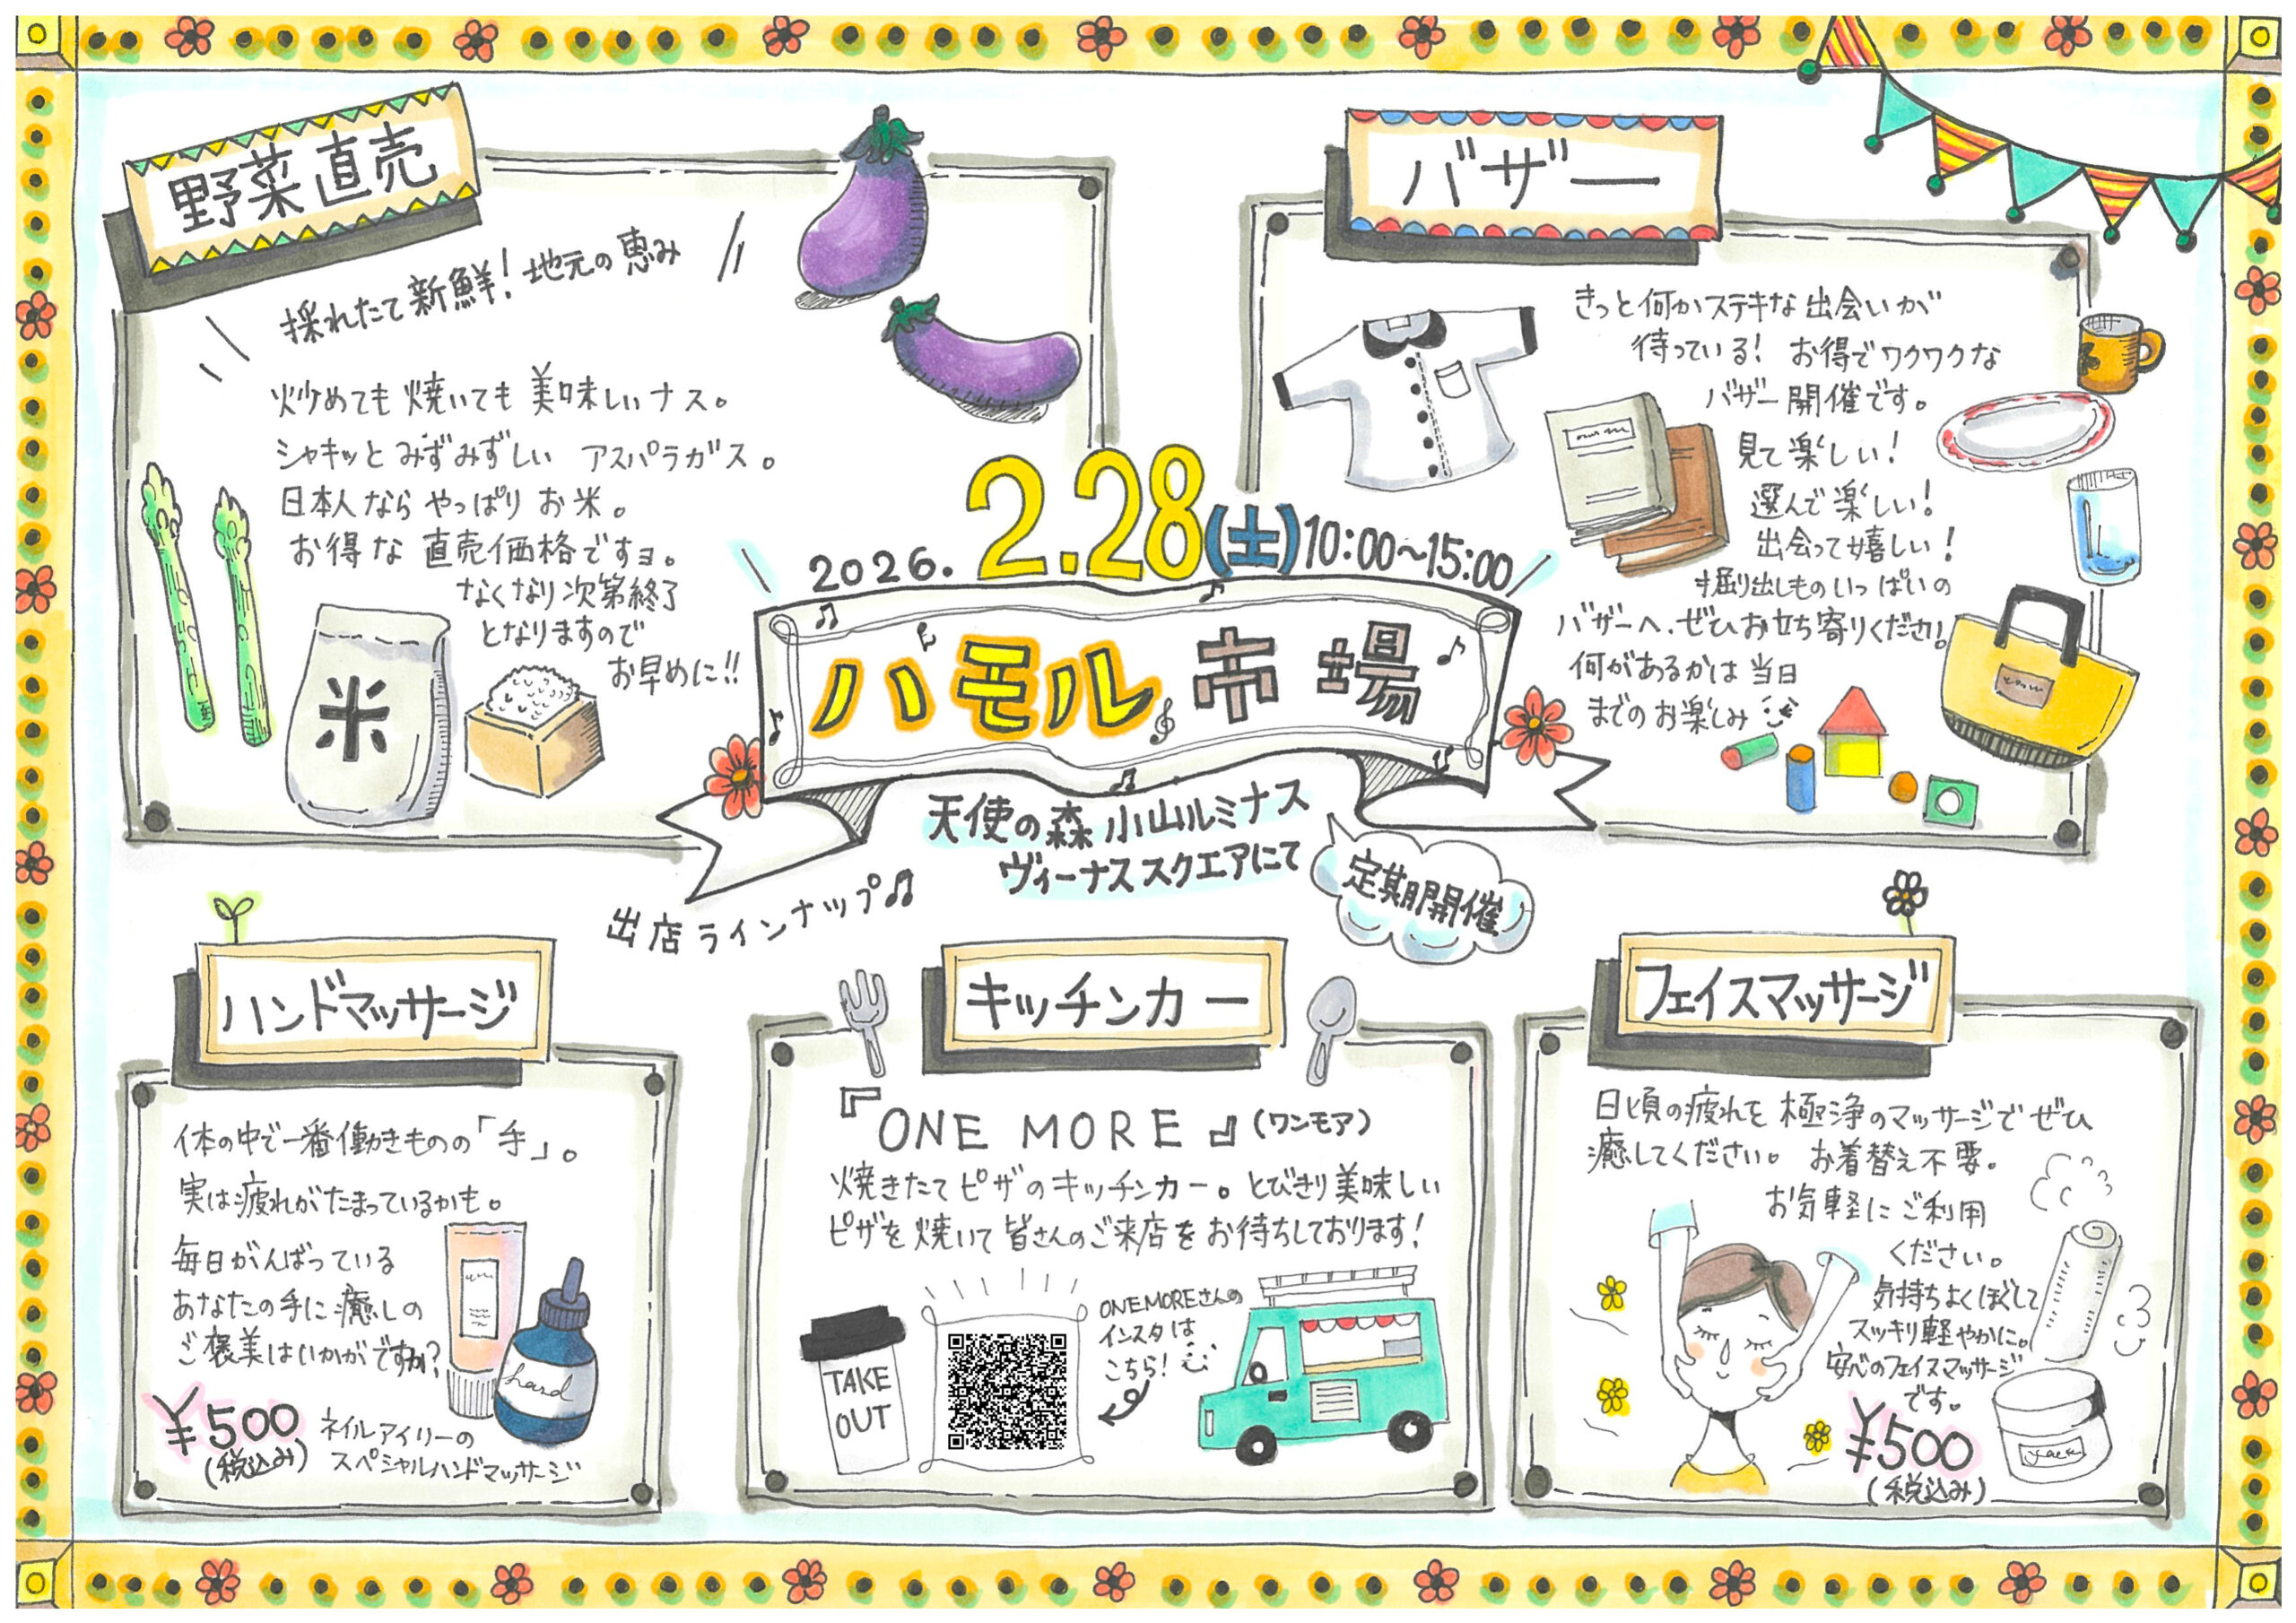 野菜直売
採れたて新鮮！地元の恵み
炒めても焼いても美味しいナス。
シャキッとみずみずしい アスパラガス。
日本人ならやっぱりお米。
お得な直売価格ですョ。
なくなり次第終了
となりますので
お早めに!!
米
バザー
きっと何かステキな出会いが
待っている！ お得でワクワクな
バザー開催です。
見て楽しい！
選んで楽しい！
出会って嬉しい！
掘り出しものいっぱいの
バザーへ、ぜひお立ち寄りください！
何があるかは当日
までのお楽しみ
2026. 2.28(土)10:00～15:00
ハモル市場
天使の森 小山ルミナス
ヴィーナススクエアにて
定期開催
出店ラインナップ♫
ハンドマッサージ
体の中で一番働きものの「手」。
実は疲れがたまっているかも。
毎日がんばっている
あなたの手に癒しの
ご褒美はいかがですか？
¥500
(税込み)
ネイルアイリーの
スペシャルハンドマッサージ
hand
キッチンカー
『ONE MORE』(ワンモア)
焼きたてピザのキッチンカー。とびきり美味しい
ピザを焼いて皆さんのご来店をお待ちしております！
TAKE
OUT
ONE MOREさんの
インスタは
こちら！
フェイスマッサージ
日頃の疲れを極浄のマッサージでぜひ
癒してください。お着替え不要。
お気軽にご利用
ください。
気持ちよくほぐして
スッキリ軽やかに。
安心のフェイスマッサージ
です。
¥500
(税込み)